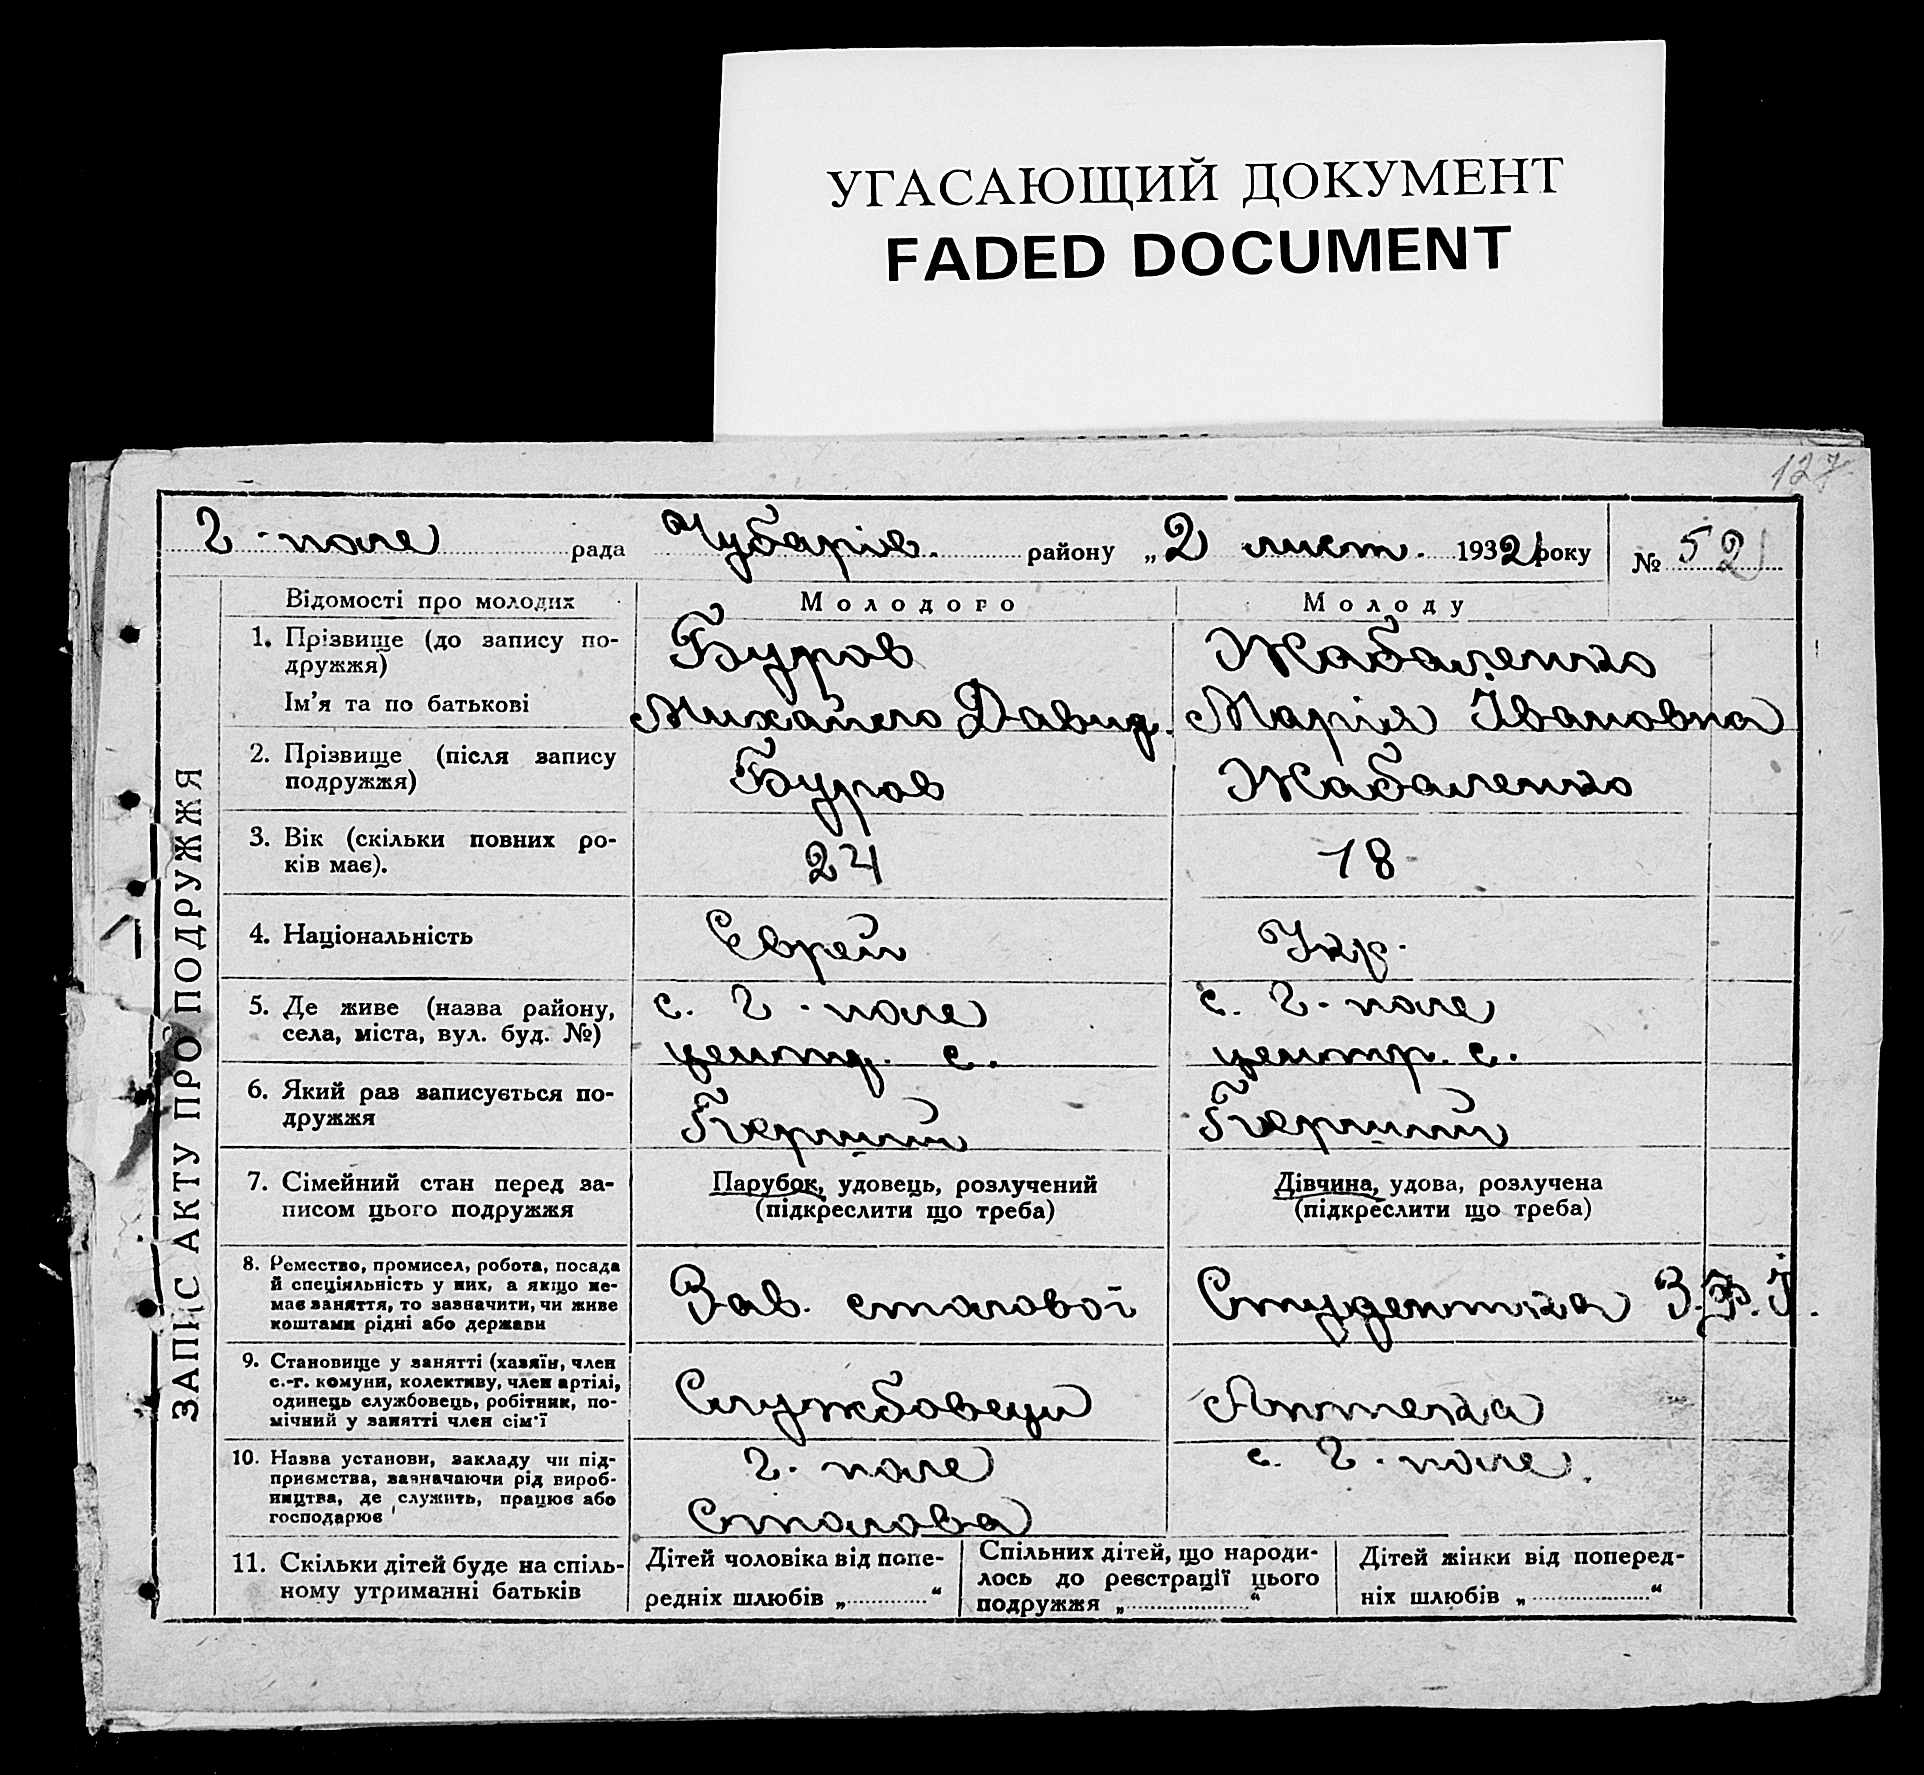 УГАСАЮЩИЙ ДОКУМЕНТ
FADED DOCUMENT
127
Г-поле рада Чубарів. району „2 лист. 1932 року № 52
ЗАПИС АКТУ ПРО ПОДРУЖЖЯ
Відомості про молодих Молодого Молоду
1. Прізвище (до запису по- Буров Жабаленко
дружжя)
Ім'я та по батькові Михайло Давид. Марія Івановна
2. Прізвище (після запису Буров Жабаленко
подружжя)
3. Вік (скільки повних ро- 24 18
ків має).
4. Національність Єврей Укр.
5. Де живе (назва району, с. Г-поле с. Г-поле
села, міста, вул. буд. №) центр. с. центр. с.
6. Який раз записується по- Перший Перший
дружжя
7. Сімейний стан перед за- Парубок, удовець, розлучений Дівчина, удова, розлучена
писом цього подружжя (підкреслити що треба) (підкреслити що треба)
8. Ремество, промисел, робота, посада
й спеціяльність у них, а якщо не- Зав. столової Студентка З.Ф.І.
має заняття, то зазначити, чи живе
коштами рідні або держави
9. Становище у занятті (хазяїн, член
с.-г. комуни, колективу, член артілі, Службовець Аптека
одинець службовець, робітник, по-
мічний у занятті член сім'ї
10. Назва установи, закладу чи під- Г-поле с. Г-поле.
приємства, зазначаючи рід вироб-
ництва, де служить, працює або Столова
господарює
11. Скільки дітей буде на спіль- Дітей чоловіка від попе- Спільних дітей, що народи- Дітей жінки від поперед-
ному утриманні батьків редніх шлюбів „ “ лось до реєстрації цього ніх шлюбів „ “
подружжя „ “